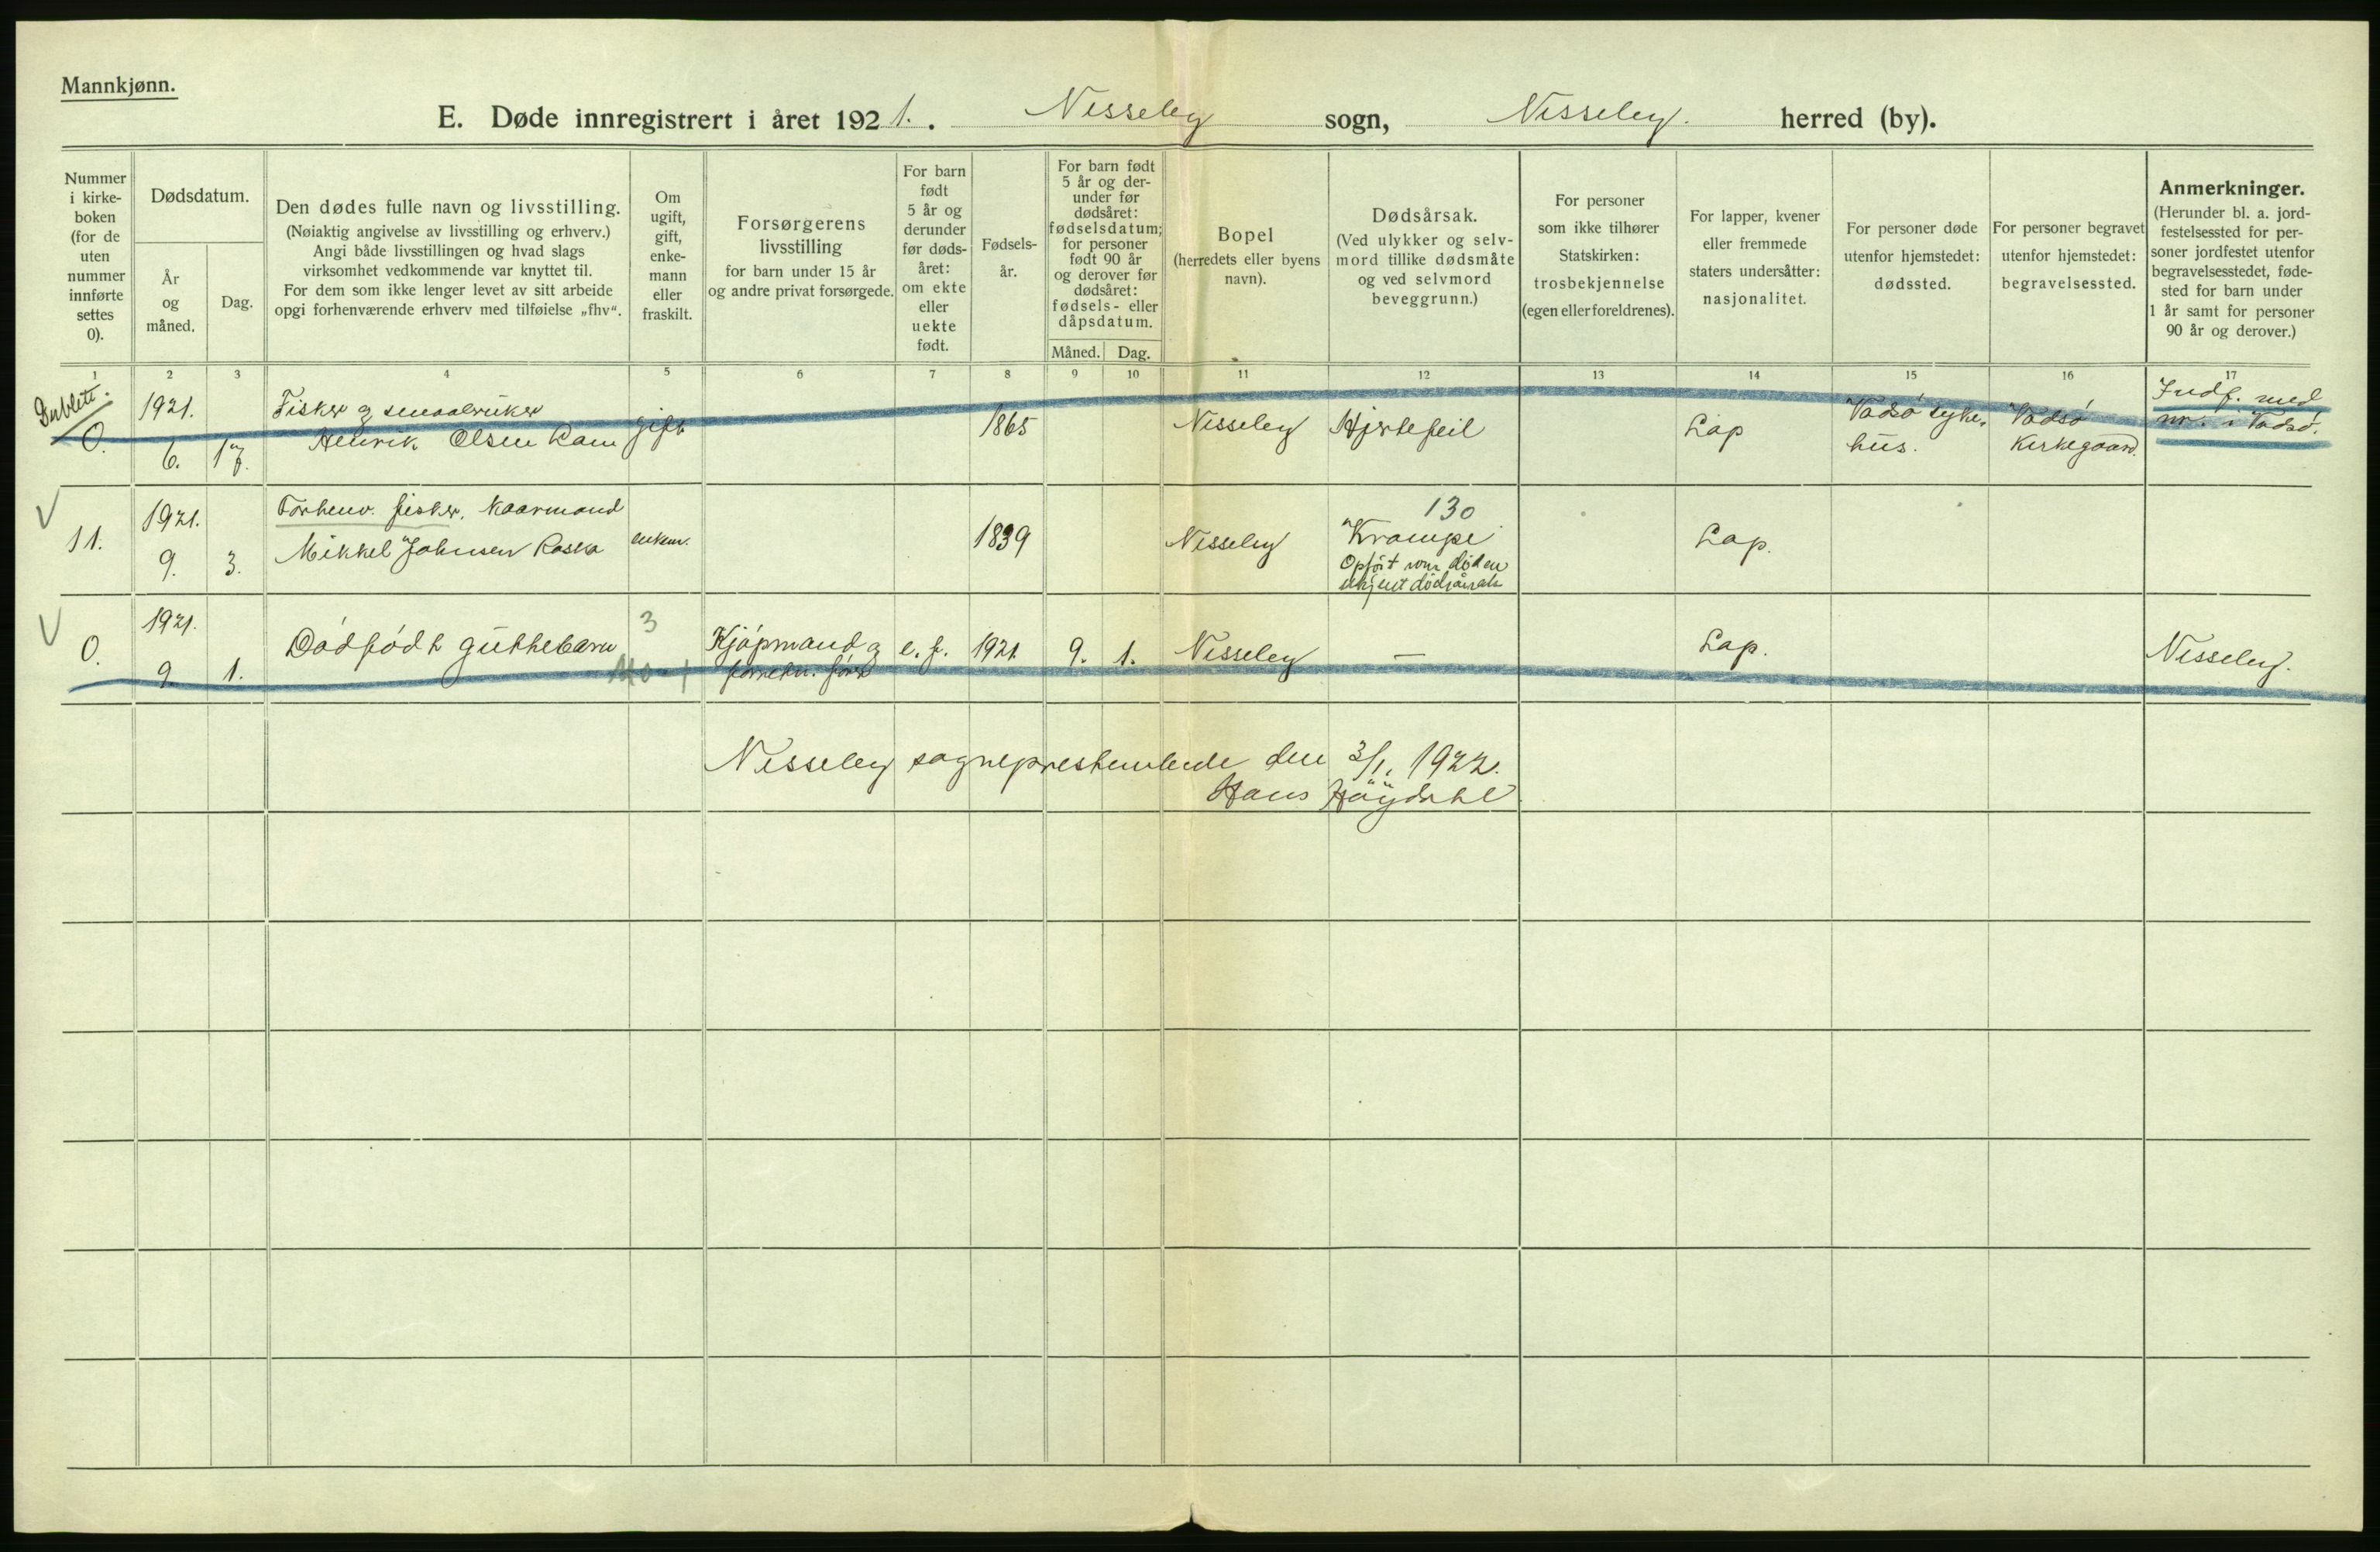 Mannkjønn.
E. Døde innregistrert i året 1921. Nesseby sogn, Nesseby. herred (by).
Nummer
i kirke-
boken
(for de
uten
nummer
innførte
settes
0).
Dødsdatum.
År
og
måned.
Dag.
Den dødes fulle navn og livsstilling.
(Nøiaktig angivelse av livsstilling og erhverv.)
Angi både livsstillingen og hvad slags
virksomhet vedkommende var knyttet til.
For dem som ikke lenger levet av sitt arbeide
opgi forhenværende erhverv med tilføielse „fhv“.
Om
ugift,
gift,
enke-
mann
eller
fraskilt.
Forsørgerens
livsstilling
for barn under 15 år
og andre privat forsørgede.
For barn
født
5 år og
derunder
før døds-
året:
om ekte
eller
uekte
født.
Fødsels-
år.
For barn født
5 år og der-
under før
dødsåret:
fødselsdatum;
for personer
født 90 år
og derover før
dødsåret:
fødsels- eller
dåpsdatum.
Måned. Dag.
Bopel
(herredets eller byens
navn).
Dødsårsak.
(Ved ulykker og selv-
mord tillike dødsmåte
og ved selvmord
beveggrunn.)
For personer
som ikke tilhører
Statskirken:
trosbekjennelse
(egen eller foreldrenes).
For lapper, kvener
eller fremmede
staters undersåtter:
nasjonalitet.
For personer døde
utenfor hjemstedet:
dødssted.
For personer begravet
utenfor hjemstedet:
begravelsessted.
Anmerkninger.
(Herunder bl. a. jord-
festelsessted for per-
soner jordfestet utenfor
begravelsesstedet, føde-
sted for barn under
1 år samt for personer
90 år og derover.)
1 2 3 4 5 6 7 8 9 10 11 12 13 14 15 16 17
Dublett.
0.
1921.
6. 17.
Fisker og smaabruker
Henrik Olsen
gift
1865
Nesseby
Hjertefeil
Lap
Vadsø syke-
hus.
Vadsø
Kirkegaard.
Indf. med
nr. i Vadsø.
11.
1921.
9. 3.
Forhenv. fisker, kaarmand
Mikkel Johnsen
enkem.
1839
Nesseby
130
Krampe
Opført som død en
ukjent dødsårsak
Lap.
0.
1921.
9. 1.
Dødfødt guttebarn
3
Kjøpmand og
e. f.
1921
9. 1.
Nesseby
—
Lap.
Nesseby.
Nesseby sogneprestembede den 3/1. 1922.
Hans Höydahl